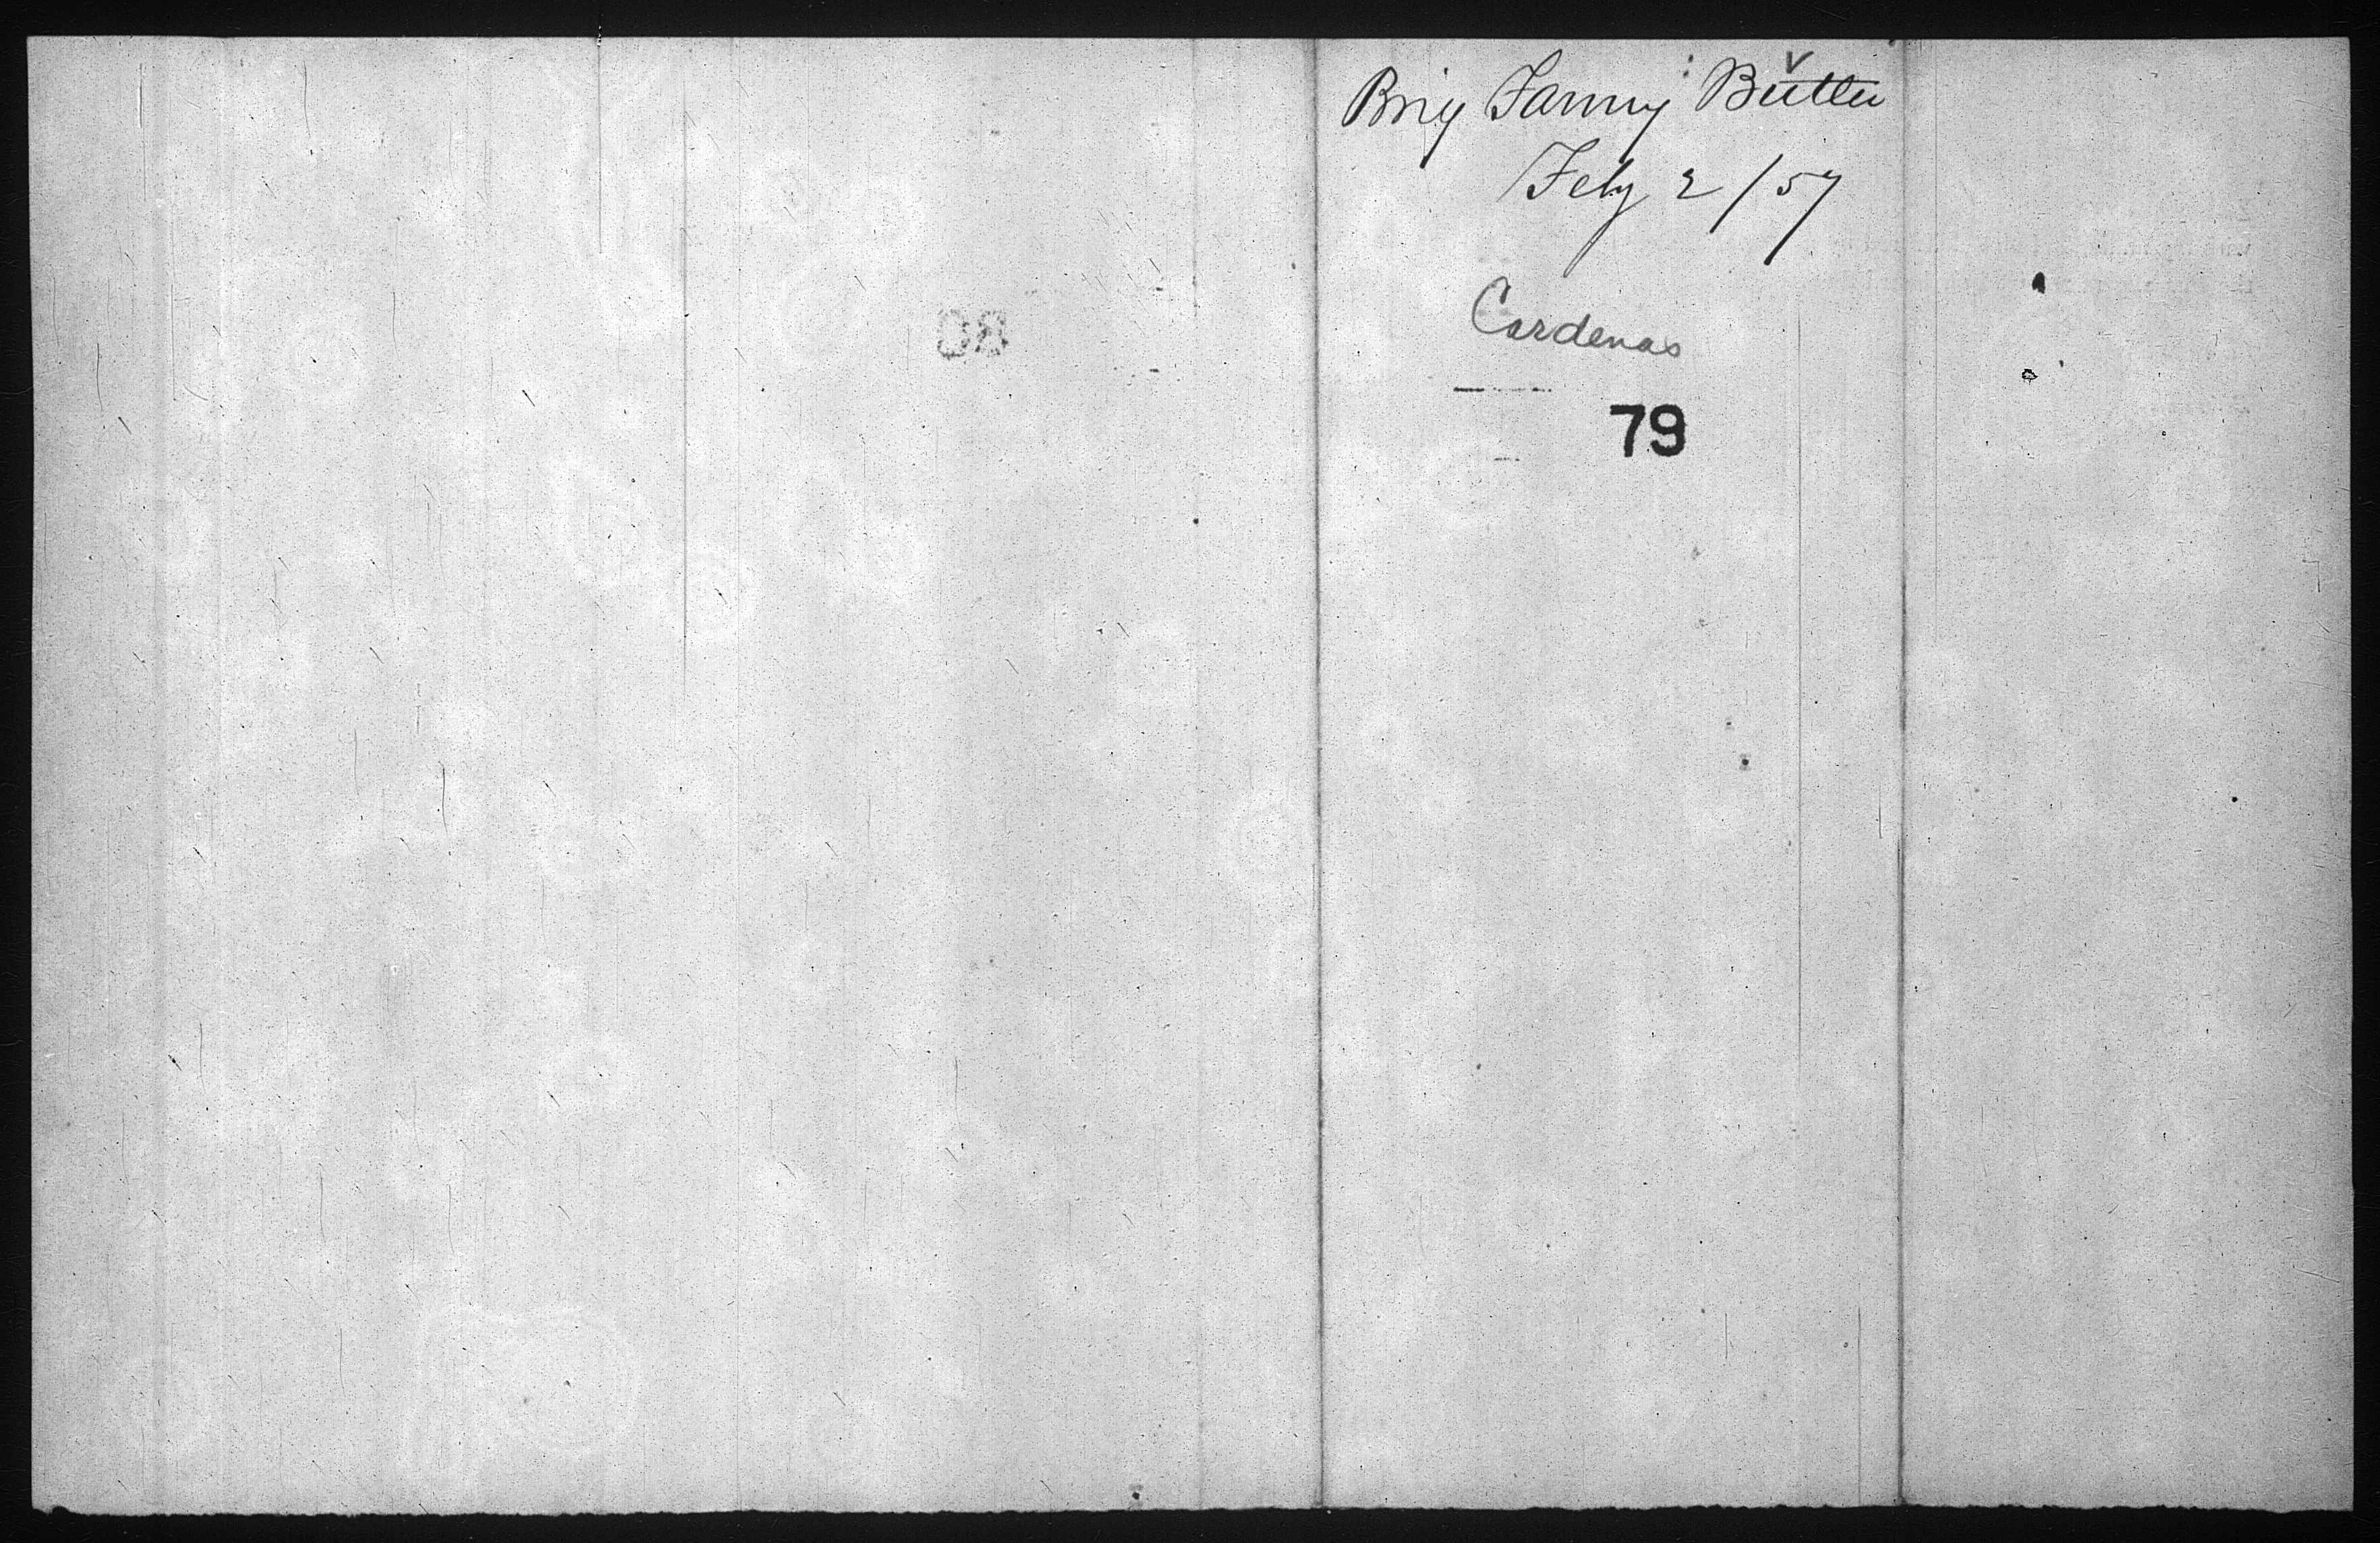 Brig Fanny Butler
Feby 2/57
Cardenas
79